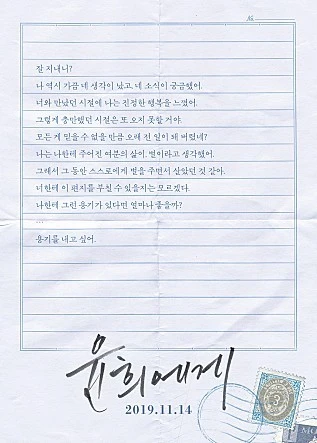 잘 지내니?
나 역시 가끔 네 생각이 났고, 네 소식이 궁금했어.
너와 만났던 시절에 나는 진정한 행복을 느꼈어.
그렇게 충만했던 시절은 또 오지 못할 거야.
모든 게 믿을 수 없을 만큼 오래 전 일이 돼 버렸네?
나는 나한테 주어진 여분의 삶이, 벌이라고 생각했어.
그래서 그 동안 스스로에게 벌을 주면서 살았던 것 같아.
너한테 이 편지를 부칠 수 있을지는 모르겠다.
나한테 그런 용기가 있다면 얼마나 좋을까?
...
용기를 내고 싶어.
윤희에게
2019.11.14
3